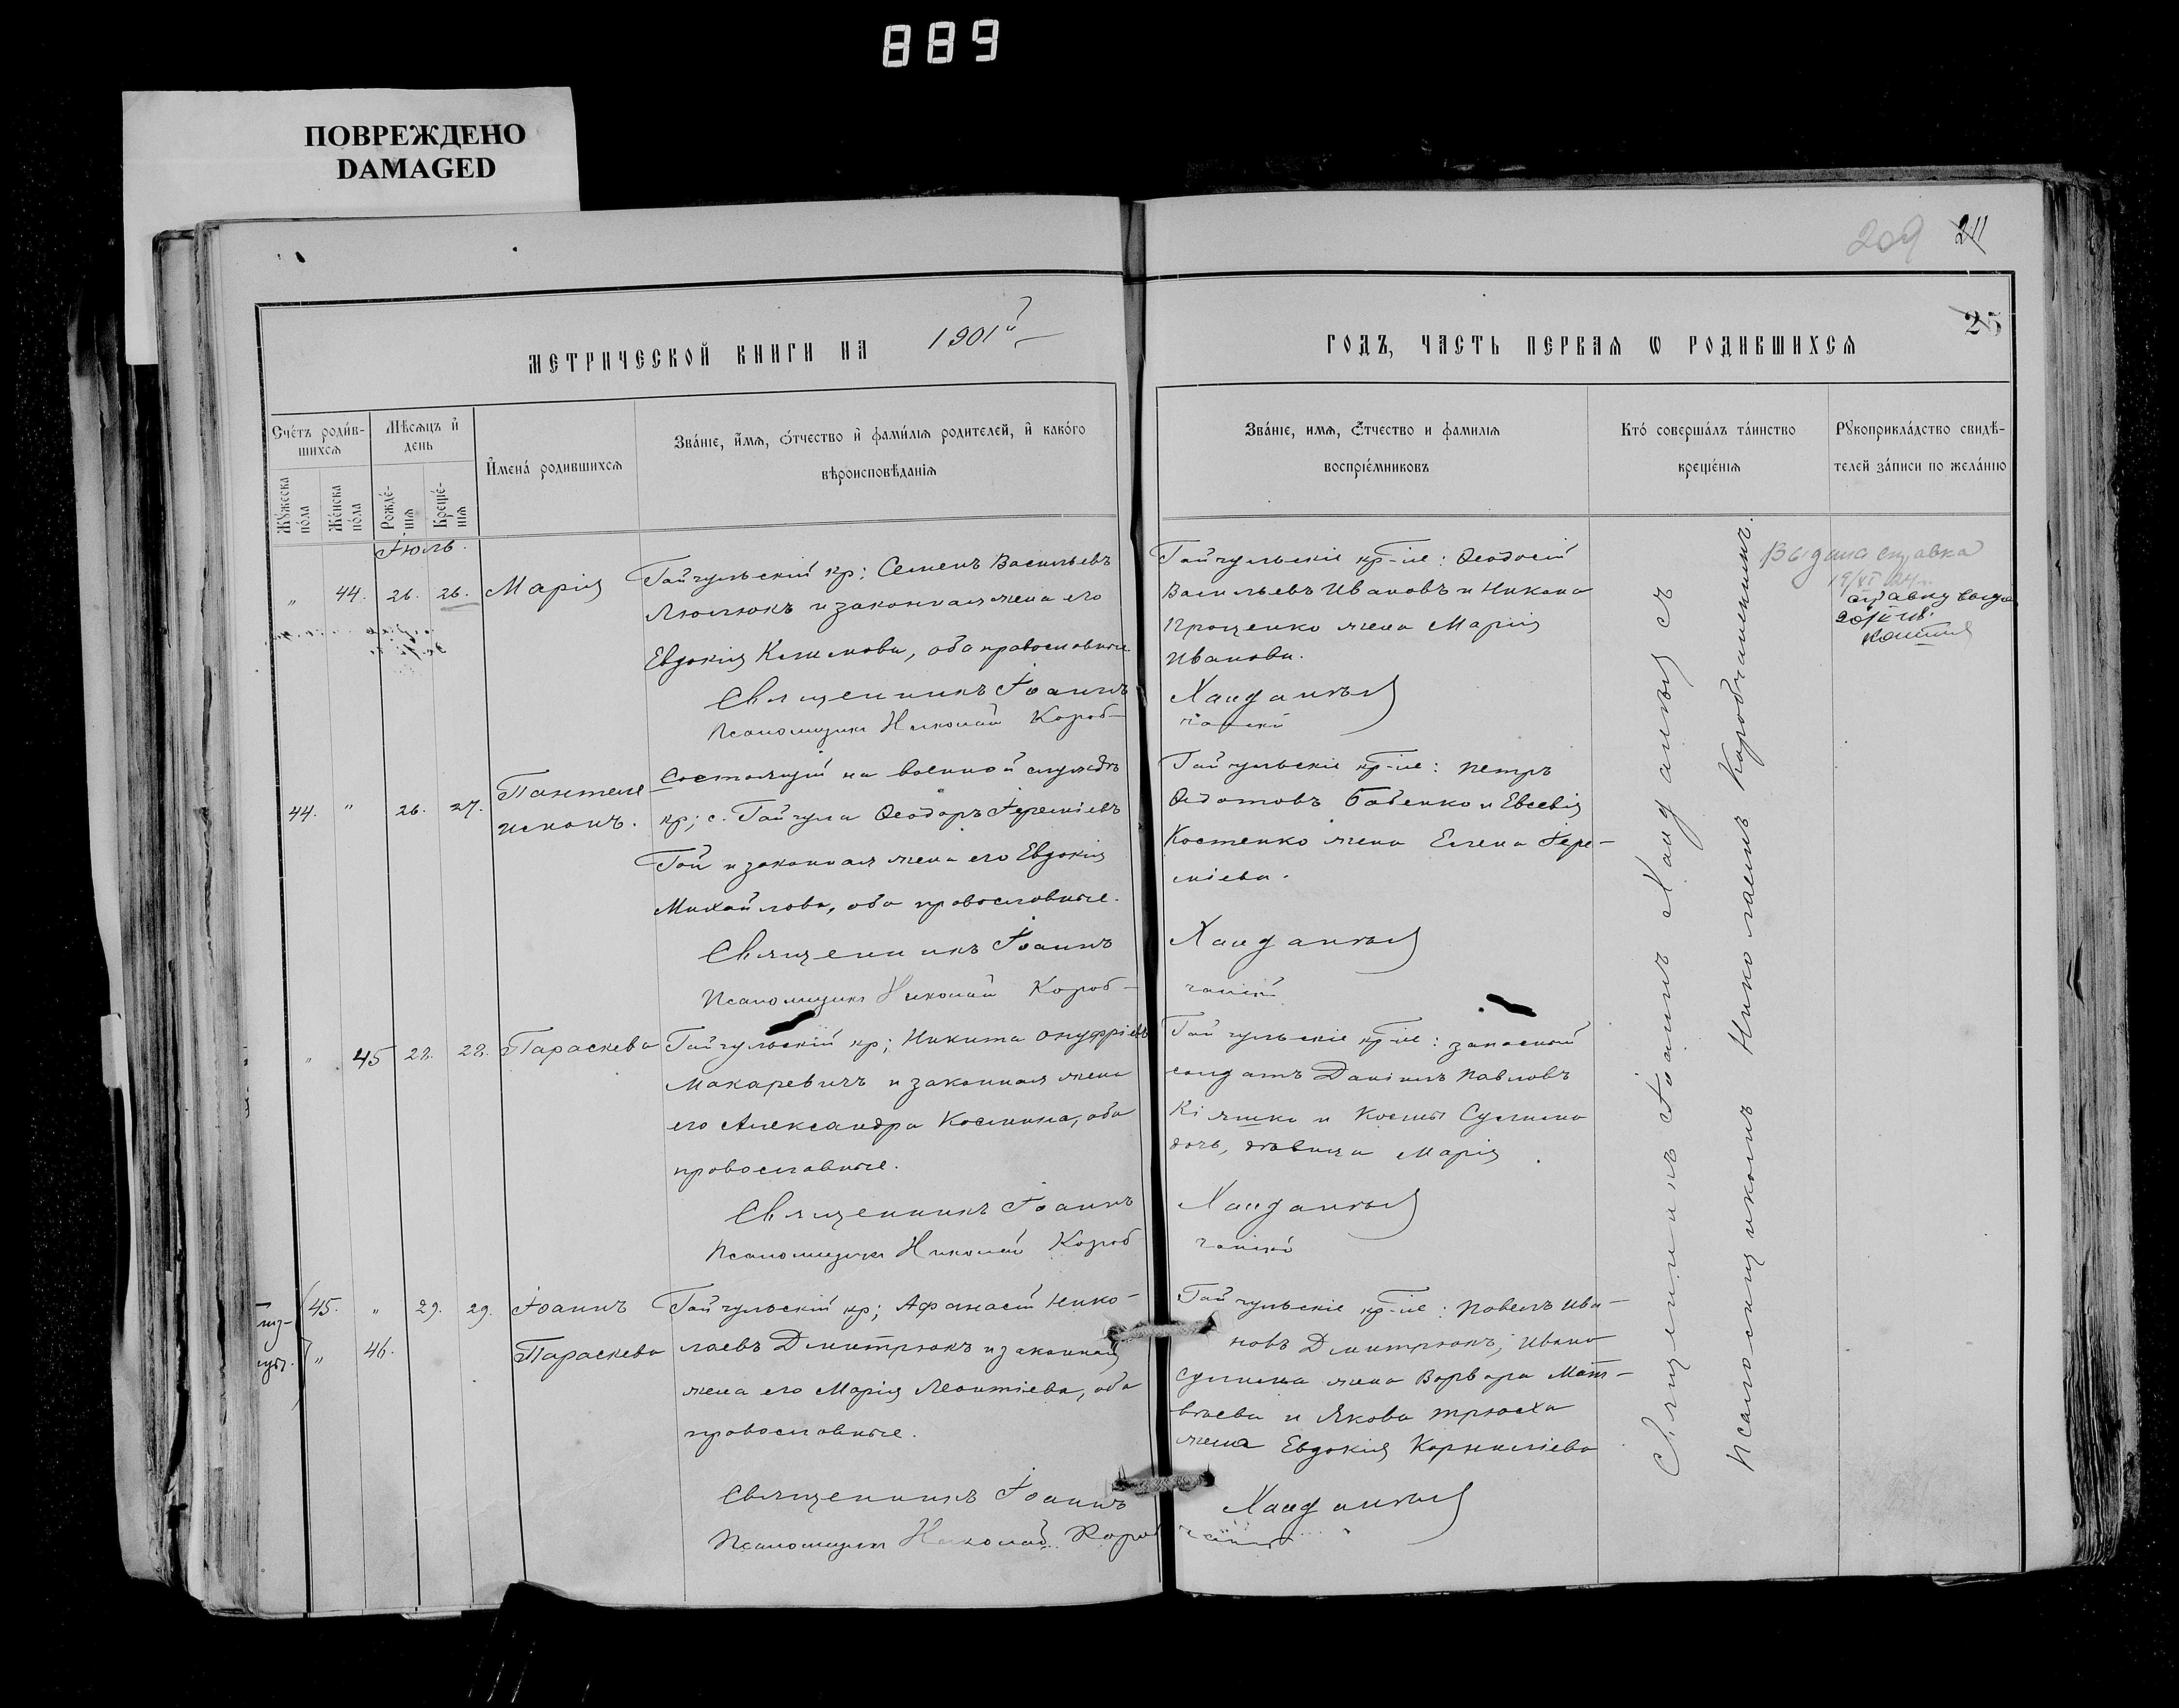 889
ПОВРЕЖДЕНО
DAMAGED
209 211
25
МЕТРИЧЕСКОЙ КНИГИ НА 1901й
ГОДЪ, ЧАСТЬ ПЕРВАЯ Ѡ РОДИВШИХСЯ
Счéтъ роди́в-
шихся
Мѣ́сяцъ и҆
день
Му́жеска
по́ла
Же́нска
по́ла
Рождé-
нія
Креще́-
нія
И҆мена́ родившихся
Зва́ніе, и҆́мя, ѻ҆́тчество и҆ фами́лія родителей, и҆ како́го
вѣроисповѣ́данія
Зва́ніе, имя, ѻ҆́тчество и фамилія
воспріе́мниковъ
Кто́ соверша́лъ та́инство
креще́нія
Рꙋкоприкла́дство свидѣ́-
телей за́писи по жела́нію
Іюль.
„ 44. 26. 26. Марія
Гайчульскій кр; Семенъ Васильевъ
Люлюкъ и законная жена его
Евдокія Климова, оба православные
Священникъ Іоаннъ
Псаломщикъ Николай Короб-
Гайчульскіе кр-не: Ѳеодосій
Васильевъ Ивановъ и Никона
Проценко жена Марія
Иванова.
Хандалѣй
чанскій
Выдана справка
19/VI 24 г.
справку выда
44. „ 26. 27. Пантеле
исконъ.
Состоящій на военной службѣ
кр; с. Гайчула Ѳеодоръ Іереміевъ
Гай и законная жена его Евдокія
Михайлова, оба православные.
Священникъ Іоаннъ
Псаломщикъ Николай Короб-
Гайчульскіе кр-не: Петръ
Ѳедотовъ Бабенко и Евсевія
Костенко жена Елена Іере-
міева.
чанскій
„ 45 28. 28. Параскева
Гайчульскій кр; Никита Онуфріевъ
Макаревичъ и законная жена
его Александра Космина, оба
православные.
Священникъ Іоаннъ
Псаломщикъ Николай Короб
Гайчульскіе кр-не: запасный
солдатъ Даніилъ Павловъ
Кіяшко и Космы Сулима
дочь, дѣвица Марія
чанскій
45. „ 29. 29. Іоаннъ
„ 46. Параскева
Гайчульскій кр; Афанасій Нико-
лаевъ Дмитрюкъ и законная
жена его Марія Леонтіева, оба
православные.
Священникъ Іоаннъ
Псаломщикъ Николай Короб
Гайчульскіе кр-не: Павелъ Ива-
новъ Дмитрюкъ, Ивана
Сулима жена Варвара Мат-
вѣева и Якова Трюхха
жена Евдокія Корниліева
чанскій
Священникъ Іоаннъ
Псаломщикомъ Николаемъ Коробчанскимъ.